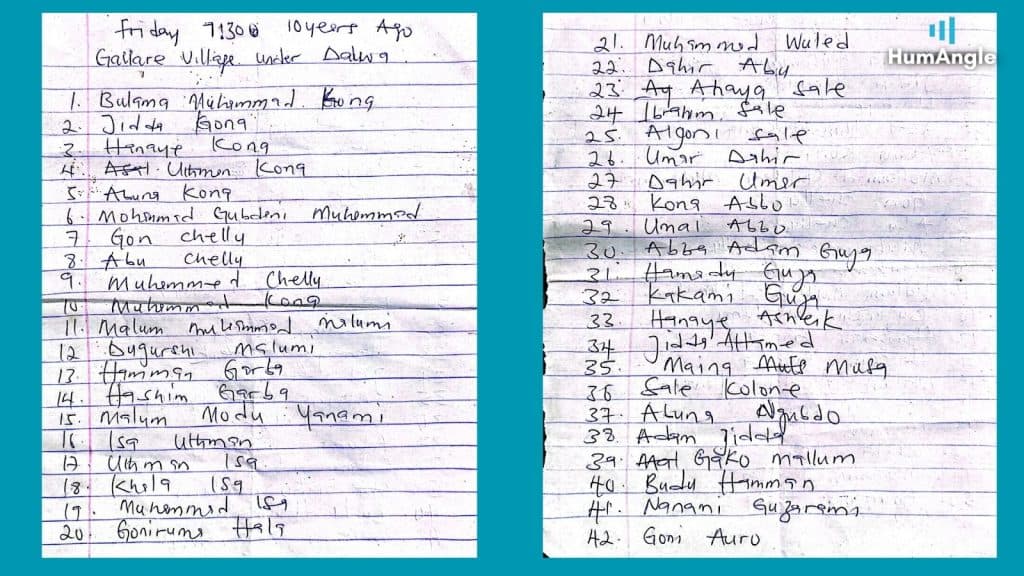 Friday 71300 10 years Ago
Gallare Village under Dalwa
1. Bulama Muhammad Kong
2. Jidda Kona
3 Hanaye Kong
4. Uthman Kong
5. Abuna Kong
6. Mohammad Gubdeni Muhammad
7. Gon Chelly
8. Abu Chelly
9. Muhammed Chelly
10. Muhammad Kong
11. Malum muhammad malumi
12 Dugurshi malumi
13. Hamman Garba
14. Hashim Garba
15. Malum Modu Yanami
16 Isa Uthman
17. Uthman Isa
18. Khala Isa
19. Muhammad Isa
20. Gonirums Hala
HumAngle
21. Muhammed Waled
22. Dahir Abu
23. Ahaya Sale
24 Ibrahim Sale
25. Algoni Sale
26. Umar Dahir
27 Dahir Umar
28. Kong Abbo
29. Umai Abbo
30. Abba Adam Guja
31. Hamsdy Guja
32 Kakami Guja
33. Hanaye Asheik
34 Jidda Ahmed
35. Maina Musa
36 Sale Kolone
37. Abuna Ngubdo
38. Adam Jidda
39. Gako mallum
40. Budu Hamman
41. Nanami Guzarami
42. Goni Auro